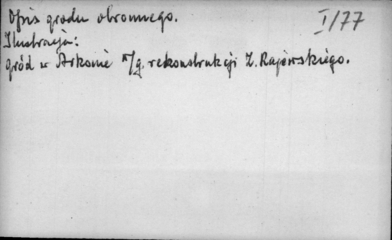 Opis grodu obronnego.
I/77
Ilustracja:
gród w Arkonie n/g. rekonstrukcji Z. Rajewskiego.